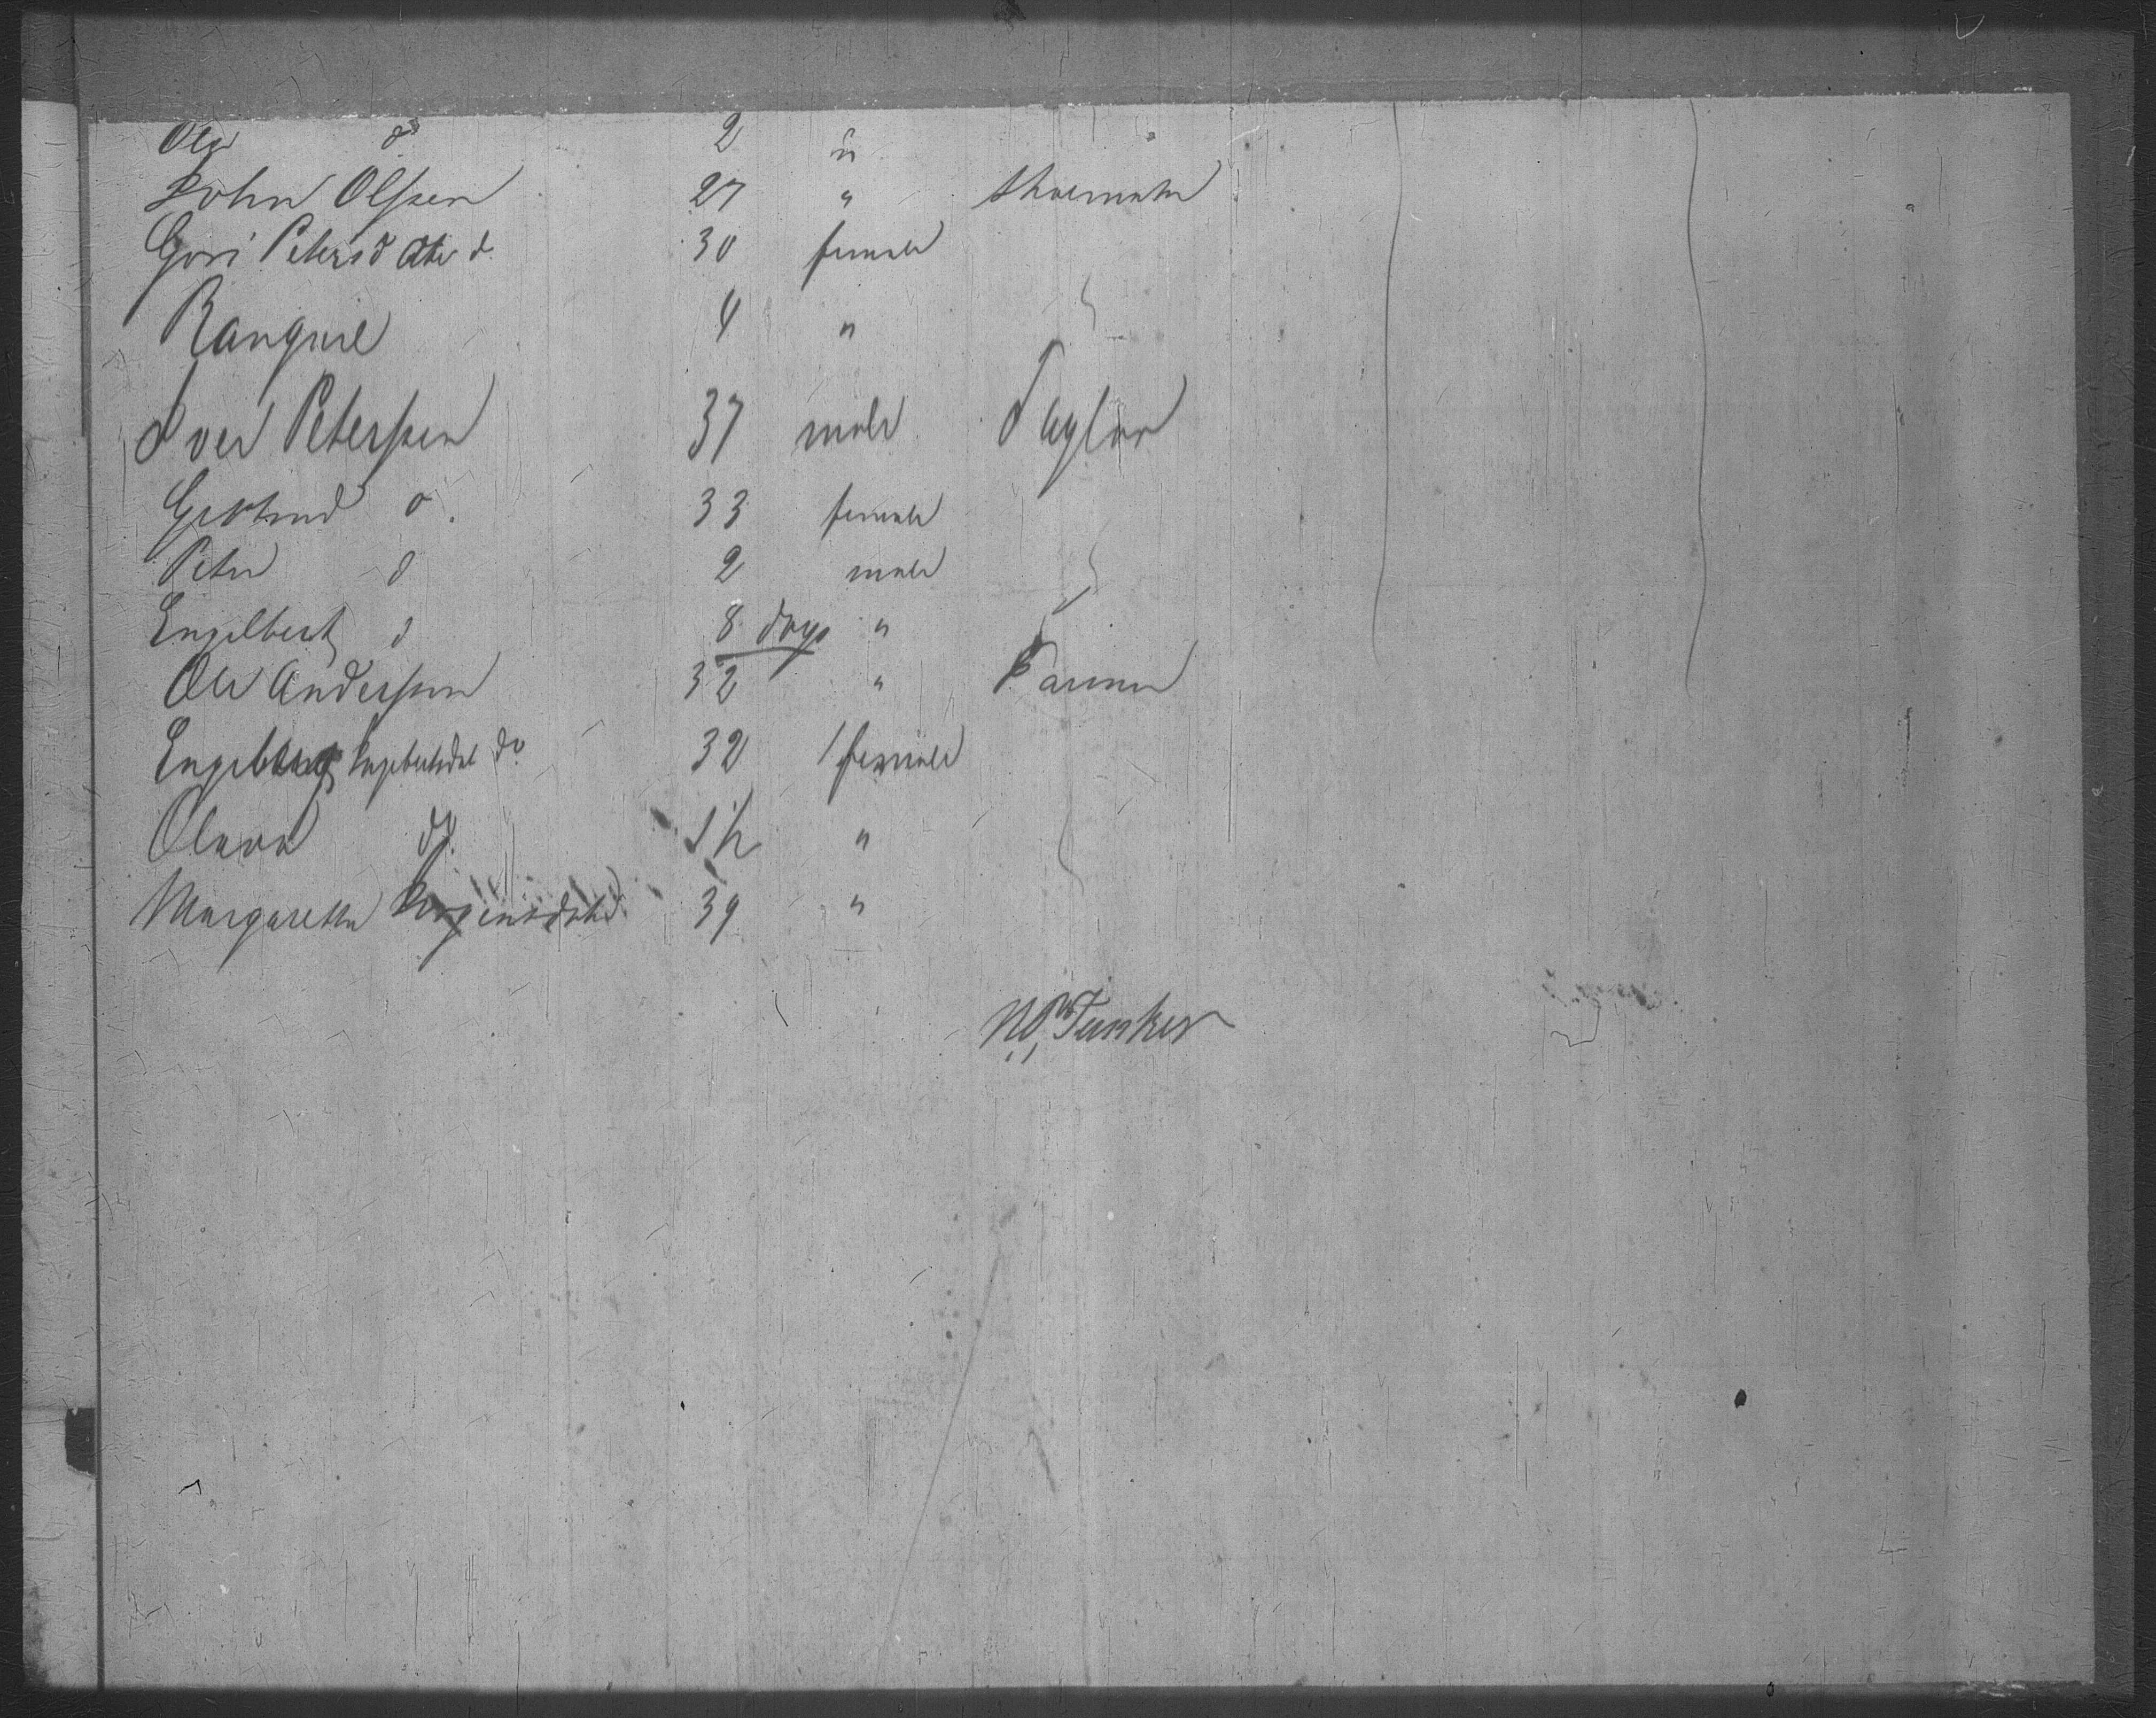 Ole do 2 "
John Olssen 27 " Shoemaker
Gori Petersdatter d 30 female
Rangnil 4 "
Iver Peterssen 37 male Taylor
Gertrud do 33 female
Peter d 2 male
Engelbert d 8 days "
Ole Anderssen 32 " Farmer
Engeborg do 32 female
Olava do 1½ "
Margaretha 39 "